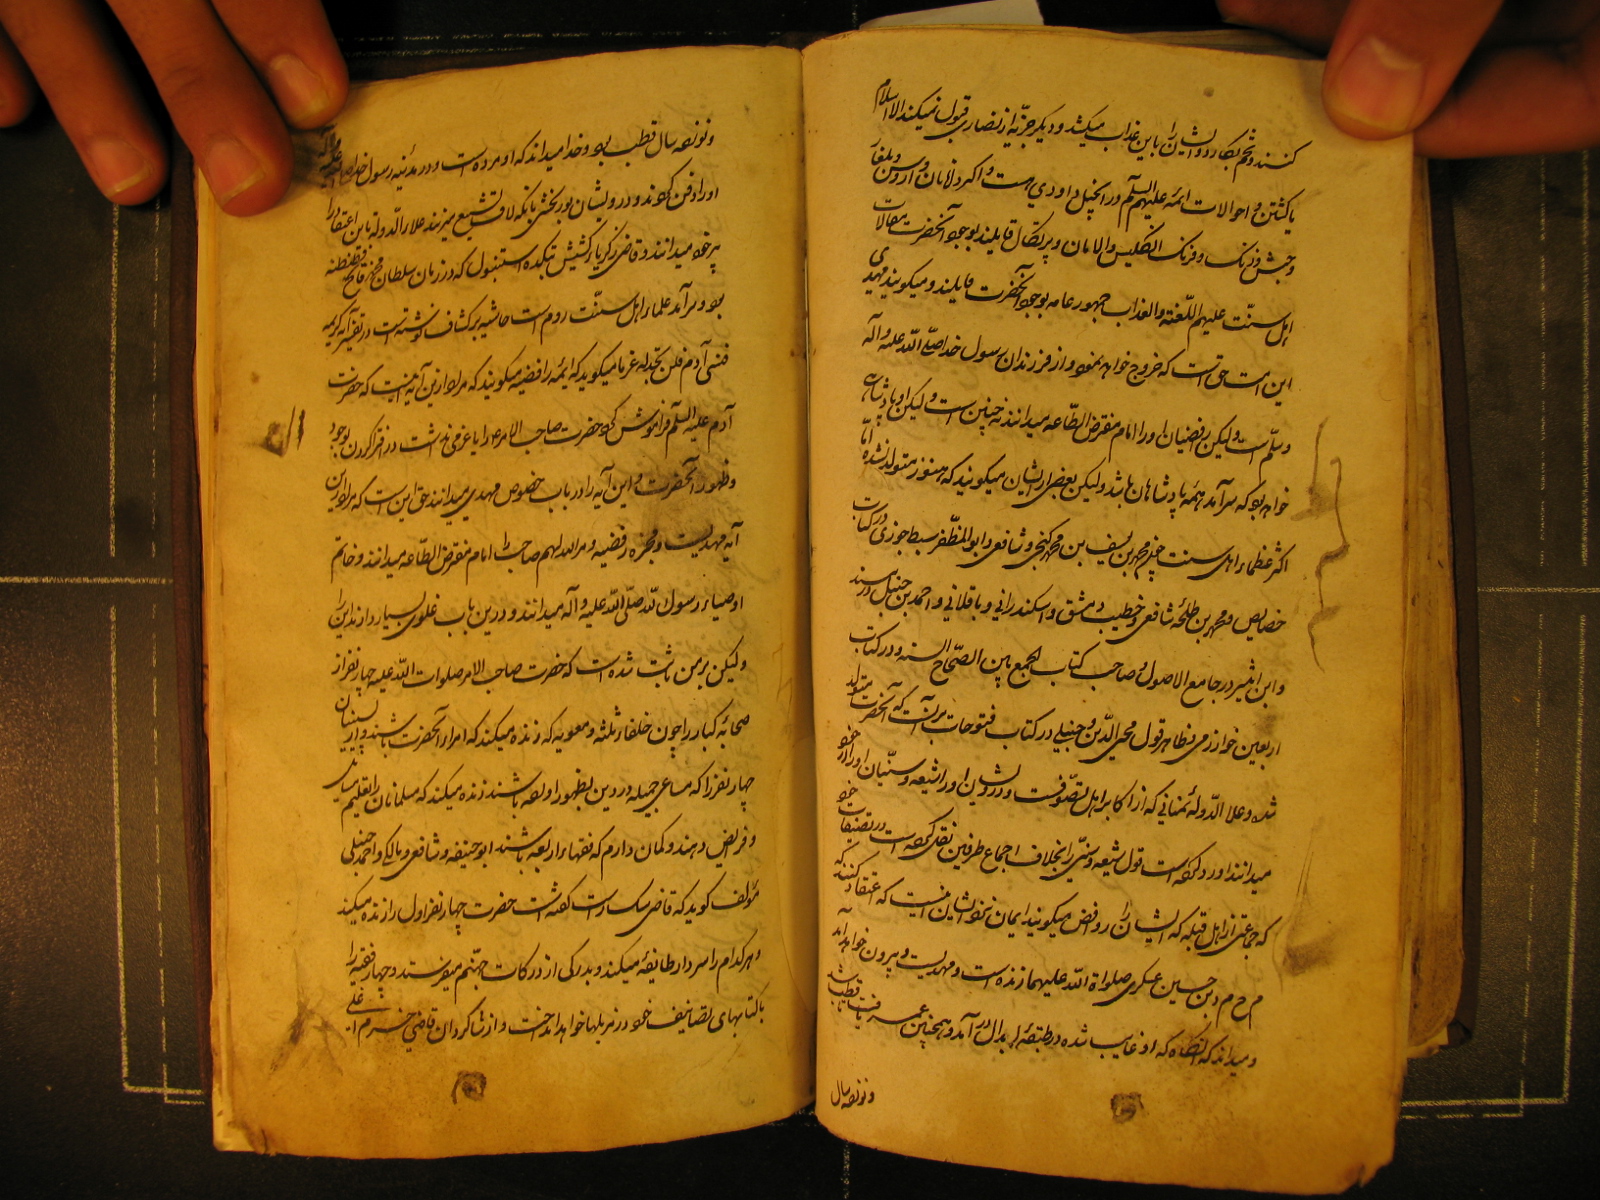 کنند و تخم بکارد و ایشان را باین عذاب میکشد و دیگر جزیه از نصاری قبول نمیکند الا اسلام
یا کشتن و احوالات ائمه علیهم السلم در انجیل داودی هست و اکر دلامان و روس و بلغار
و حبش و زنک و فرنک انکلیس و الامان و پرتکال قایلند بوجود آنحضرت مقالات
اهل سنّت علیهم اللّعنة والعذاب جمهور عامه بوجود آنحضرت قایلند و میکویند مهدی
این امت حق است که خروج خواهد نمود و از فرزندان رسول خدا صلّی الله علیه و آله
و سلّم است و لیکن رفضیان او را امام مفترض الطّاعه میدانند نه چنین است و لیکن او پادشاهی
خواهد بود که سرآمد همۀ پادشاهان باشد و لیکن بعضی ایشان میکویند که هنوز متولد نشده امّا
اکثر عظماء اهل سنت چون محمد بن یوسف بن محمد کنجی و شافعی و ابوالمظفّر سبط جوزی در کتاب
خصایص و محمد بن طلحۀ شافعی و خطیب دمشق و اسکندرانی و باقلانی و احمد بن حنبل در مسند
و ابن اثیر در جامع الاصول و صاحب کتاب الجمع بین الصّحاح السته و در کتاب
اربعین خوارزمی و ظاهر قول محیی الدّین و حنبلی در کتاب فتوحات برآنست که آنحضرت متولد
شده و علاء الدّوله سمنانی که از اکابر اهل تصوّفست و درویشان او را شیعه و سنّیان او را از خود
میدانند او رد کرده است قول شیعه و سنّی را بخلاف اجماع طرفین نقل کرده است در تصنیفات خود
که جماعتی از اهل قبله که ایشان را روافض میکویند ایمان نزد ایشان اینست که اعتقاد کنند که
م ح م د بن حسین عسکری صلواة الله علیهما زنده است و مهدیست و بیرون خواهد آمد
و میداند که آنکاه که او غایب شده در طبقۀ ابدال درآمد و همچنین عمر یافت تا قطب شد
و نوزده سال
و نوزده سال قطب بود و خدا میداند که او مرده است و در مدینه رسول خدا صلی الله علیه و آله
او را دفن کردند و درویشان نوربخشی بآنکه لاف تشیع میزنند علاء الدّوله باین اعتقاد را
پیر خود میدانند و قاضی زکریا کشیش بتکده استنبول که در زمان سلطان محمد فاتح قسطنطنیه
بود و سرآمد علماء اهل سنّت روم است حاشیه بر کشاف نوشته است در تفسیر آیه کریمه
فنسی آدم فلن تجد له عزما میکوید که ائمه رافضیه میکویند که مراد ازین آیه اینست که حضرت
آدم علیه السلم فراموش کرد حضرت صاحب الامر را یا عزمی نداشت در اقرار کردن بوجود
و ظهور آنحضرت و این آیه را در باب خصوص مهدی میدانند حق این است که مراد ازین
آیه مهدیست و رفضیه صاحب را امام مفترض الطّاعه میدانند و خاتم
اوصیاء رسول الله صلّی الله علیه و آله میدانند و درین باب غلوی بسیار دارند این را
ولیکن بر من ثابت شده است که حضرت صاحب الامر صلوات الله علیه چهار نفر از
صحابۀ کبار را چون خلفاء ثلثه و معویه که زنده میکند که امرای آنحضرت باشند و از سنیان
چهار نفر را که مساعی جمیله در دین بظهور آورده باشند زنده میکند که مسلمانان را تعلیم مسایل
و فرایض دهند و کمان دارم که فقهاء اربعه باشند ابو حنیفه و شافعی و مالکی و احمد حنبلی
مؤلف کوید که قاضی راست کفته است حضرت چهار نفر اول را زنده میکند
و هر کدام را سردار طایفۀ میکند و بدرکی از درکات جهنّم میفرستد و چهار فقیه را
با کتابهای تصانیف خود در مزبلها خواهد انداخت و از شاکردان قاضی